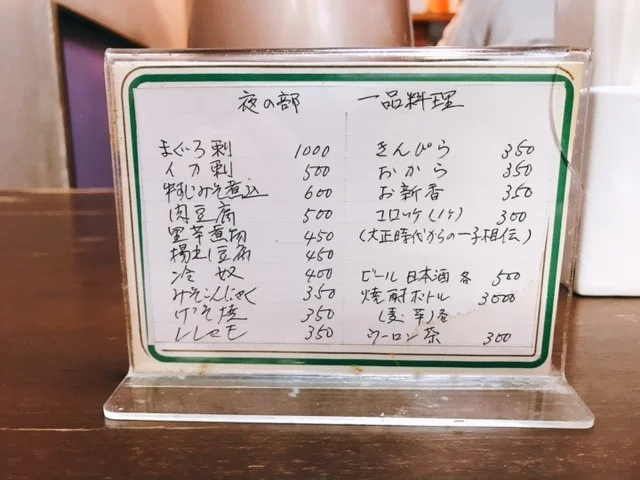 夜の部
まぐろ刺 1000
イカ刺 500
牛すじみそ煮込 600
肉豆腐 500
里芋煮物 450
揚出し豆腐 450
冷奴 400
みそこんにゃく 350
げそ焼 350
ししゃも 350
一品料理
きんぴら 350
おから 350
お新香 350
コロッケ(1ヶ) 300
(大正時代からの一子相伝)
ビール 日本酒 各 500
焼酎ボトル 3000
(麦・芋)各
ウーロン茶 300